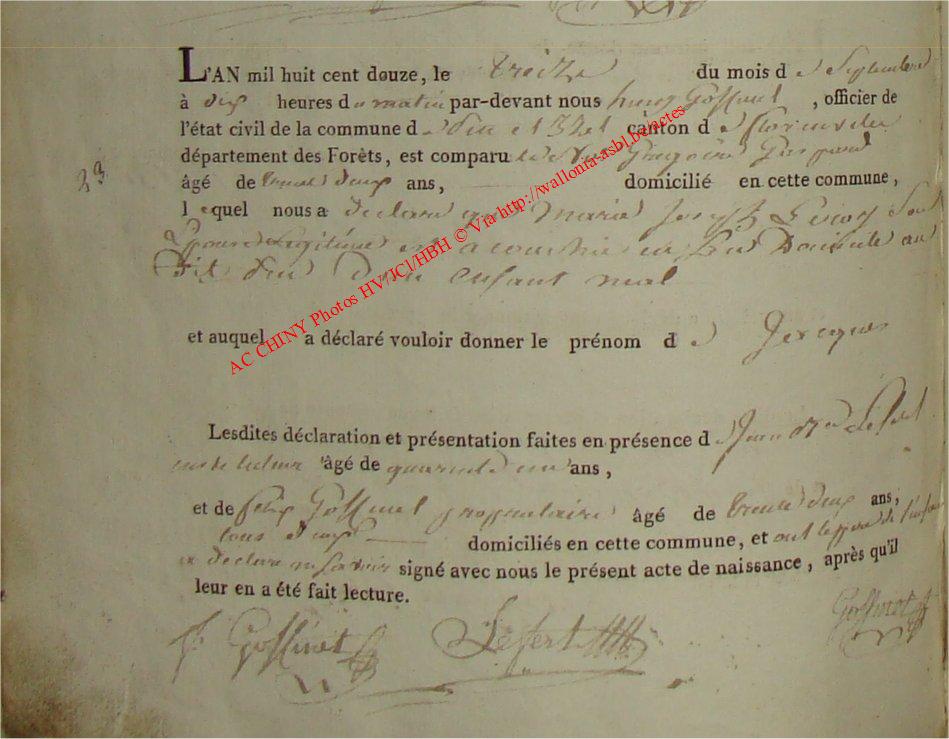 L'AN mil huit cent douze, le treize du mois de Septembre
à dix heures du matin par-devant nous henry Gossinet, officier de
l'état civil de la commune d canton de florenville
département des Forêts, est comparu Gregoire Gaspard
23.
âgé de trente deux ans, domicilié en cette commune,
lequel nous a declaré que Marie Joseph Son
Epouse Legitime est acouchée en Son Domicile au
dit d'un enfant mal
et auquel a déclaré vouloir donner le prénom de Jacques
Lesdites déclaration et présentation faites en présence de Jean Lefert
instituteur âgé de quarante un ans,
et de felix Gossinet proprietaire âgé de trente deux ans,
tous deux domiciliés en cette commune, et ont le pere de l'enfant
a declaré signé avec nous le présent acte de naissance, après qu'il
leur en a été fait lecture.
f. Gossinet Lefert Gossinet
AC CHINY Photos HV/JCl/HBH © Via http://wallonia-asbl.be/actes